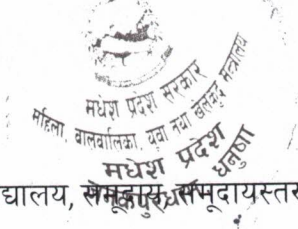 मधेश प्रदेश सरकार
महिला, बालबालिका, युवा तथा खेलकुद मन्त्रालय
मधेश प्रदेश
जनकपुरधाम, धनुषा
द्यालय, समूदाय, समूदायस्तर